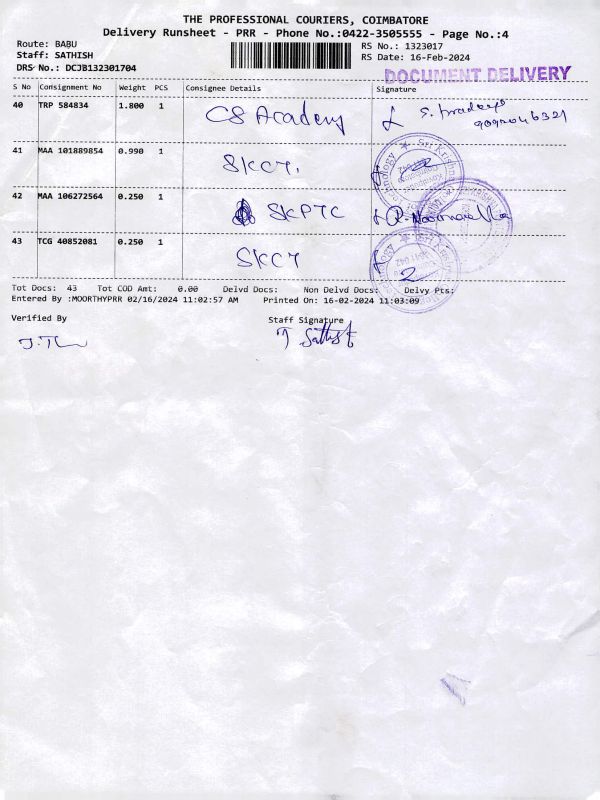 THE PROFESSIONAL COURIERS, COIMBATORE
Delivery Runsheet - PRR - Phone No.:0422-3505555 - Page No.:4
Route: BABU
Staff: SATHISH
DRS No.: DCJB132301704
RS No.: 1323017
RS Date: 16-Feb-2024
DOCUMENT DELIVERY
S No Consignment No Weight PCS Consignee Details Signature
40 TRP 584834 1.800 1 CS Academy
41 MAA 101889854 0.990 1 SKCT.
42 MAA 106272564 0.250 1 SKPTC
43 TCG 40852081 0.250 1 SKCT
Tot Docs: 43 Tot COD Amt: 0.00 Delvd Docs: Non Delvd Docs: Delvy Pts:
Entered By :MOORTHYPRR 02/16/2024 11:02:57 AM Printed On: 16-02-2024 11:03:09
Verified By
Staff Signature
T Sathish